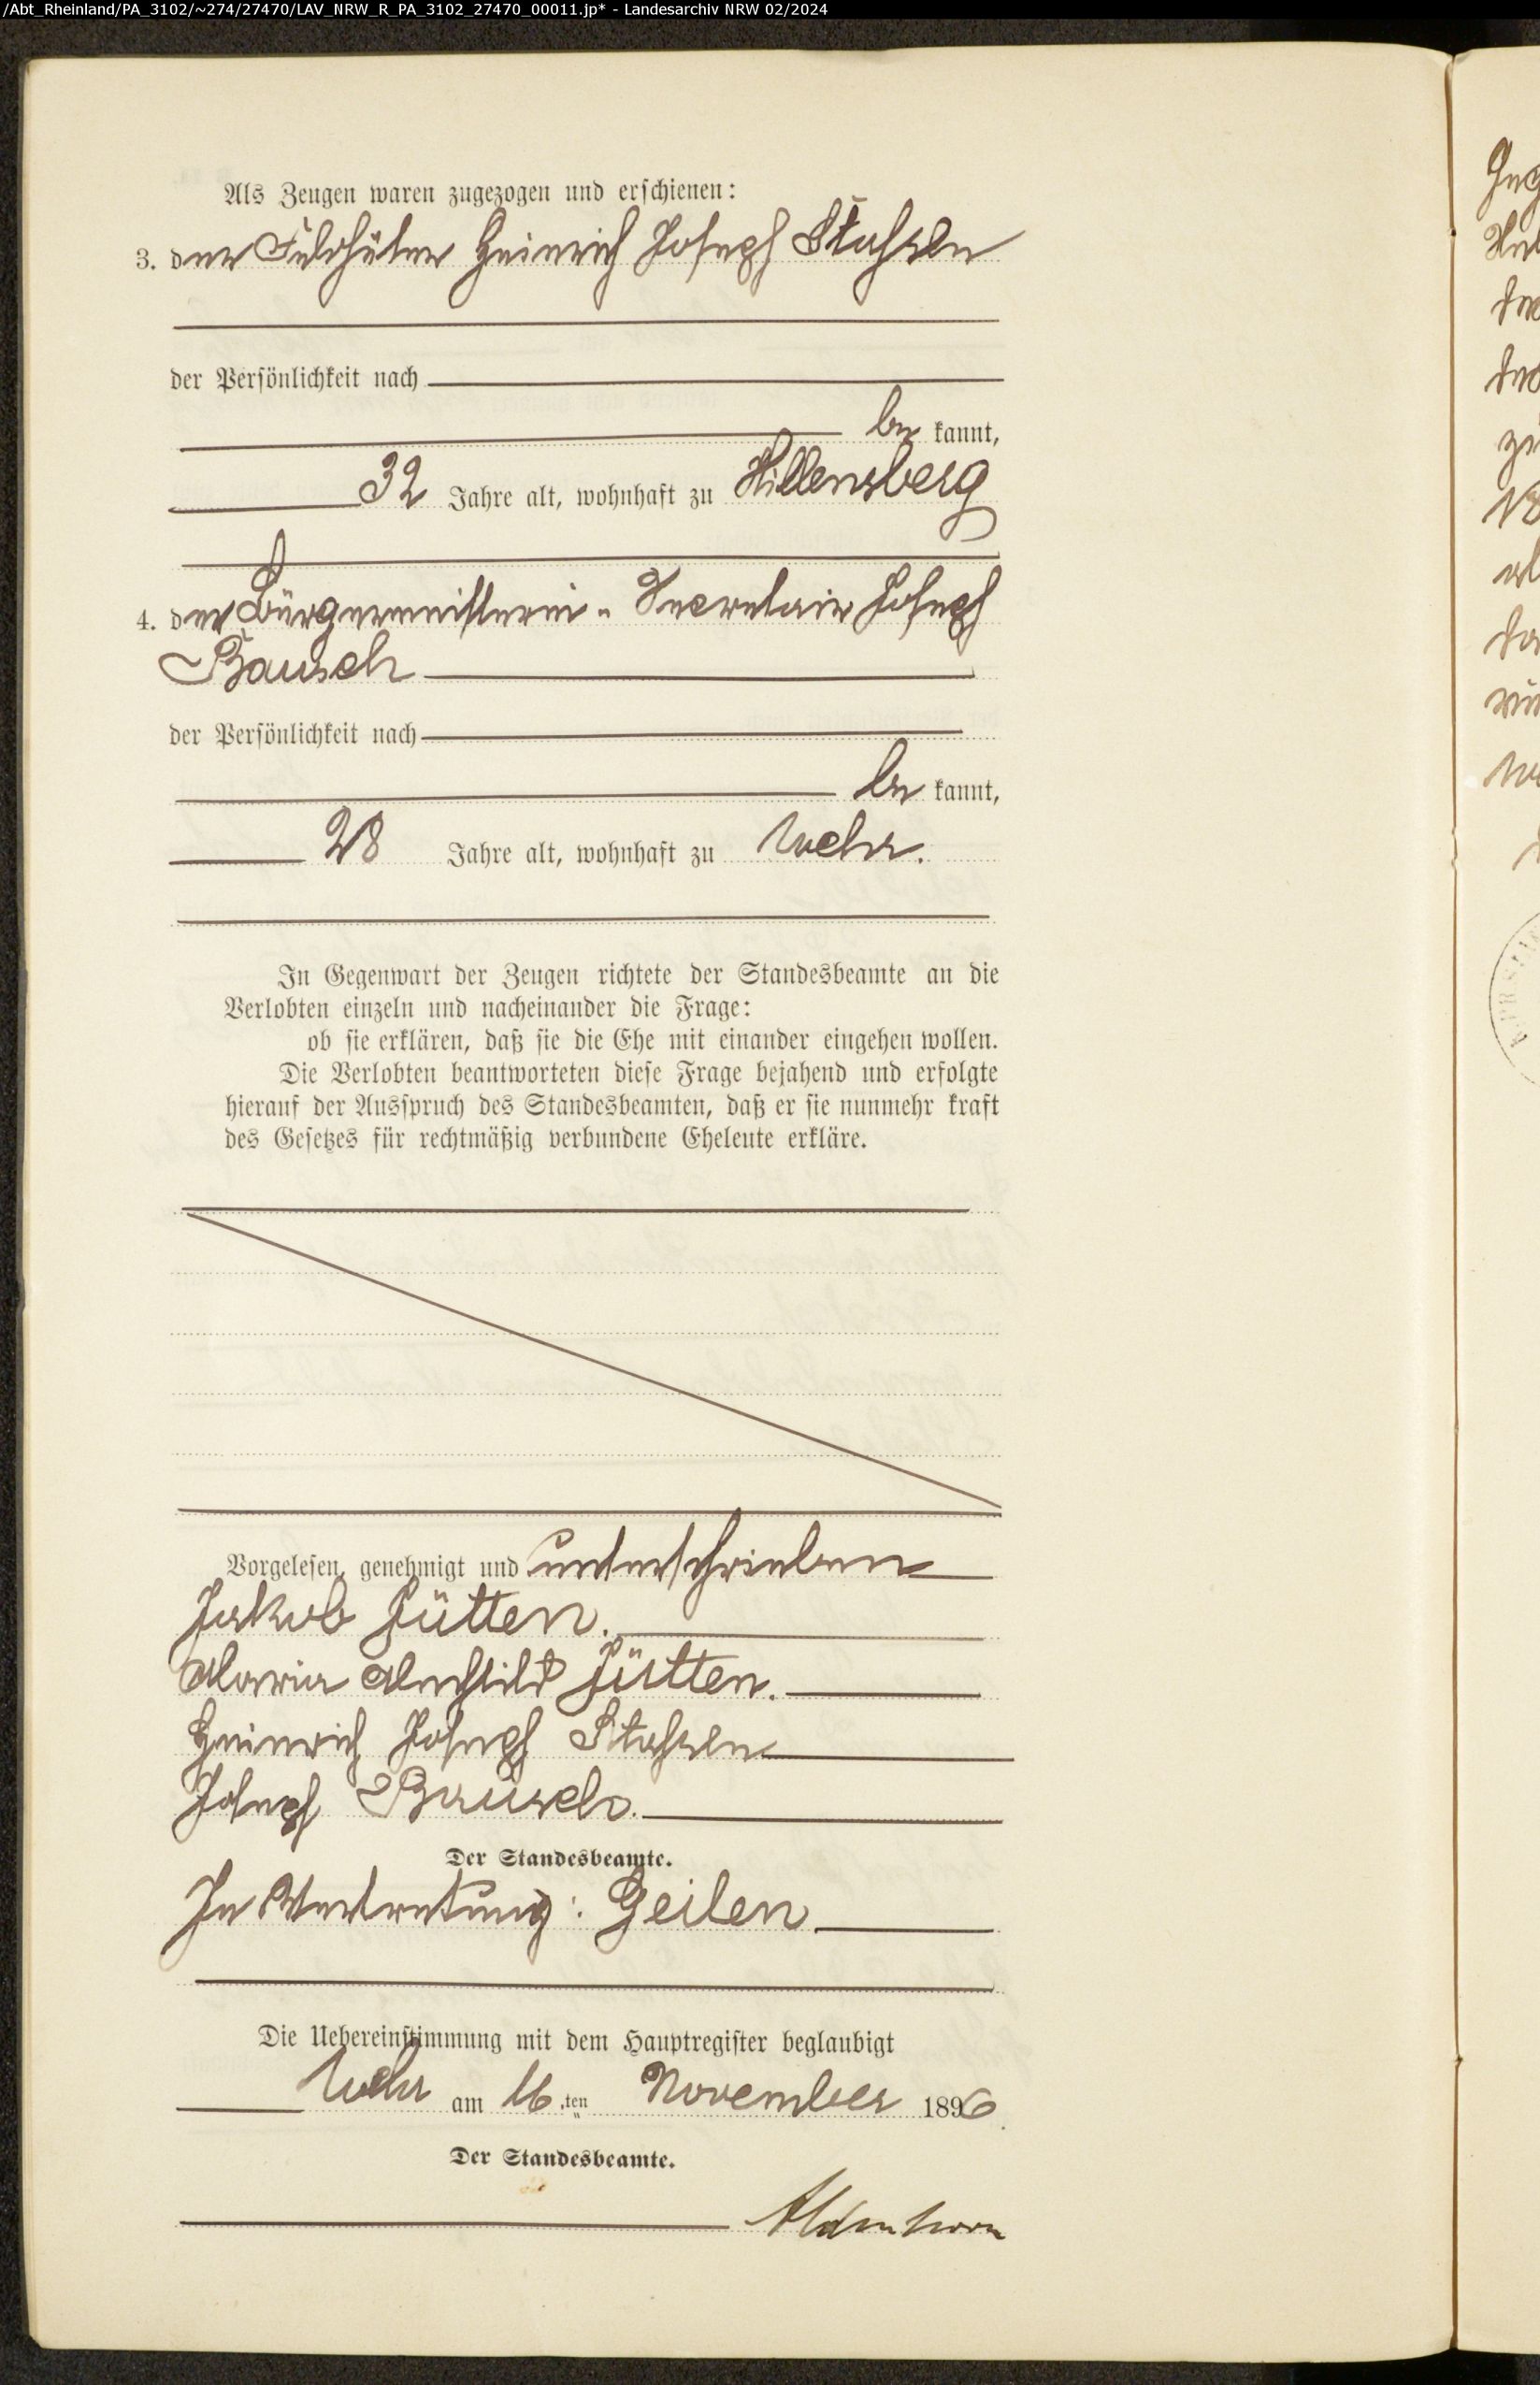 /Abt_Rheinland/PA_3102/~274/27470/LAV_NRW_R_PA_3102_27470_00011.jp* - Landesarchiv NRW 02/2024
Als Zeugen waren zugezogen und erschienen:
3. der Feldhüter Heinrich Joseph Stassen
der Persönlichkeit nach
be kannt,
32 Jahre alt, wohnhaft zu Hillensberg
4. der Bürgermeisterei-Secretair Joseph
Bausch
der Persönlichkeit nach
be kannt,
28 Jahre alt, wohnhaft zu Wehr.
In Gegenwart der Zeugen richtete der Standesbeamte an die
Verlobten einzeln und nacheinander die Frage:
ob sie erklären, daß sie die Ehe mit einander eingehen wollen.
Die Verlobten beantworteten diese Frage bejahend und erfolgte
hierauf der Ausspruch des Standesbeamten, daß er sie nunmehr kraft
des Gesetzes für rechtmäßig verbundene Eheleute erkläre.
Vorgelesen, genehmigt und unterschrieben
Jakob Jütten.
Maria Mechtild Jütten.
Heinrich Joseph Stassen
Joseph Bausch.
Der Standesbeamte.
In Vertretung: Geilen
Die Uebereinstimmung mit dem Hauptregister beglaubigt
Wehr am 16.ten November 1896.
Der Standesbeamte.